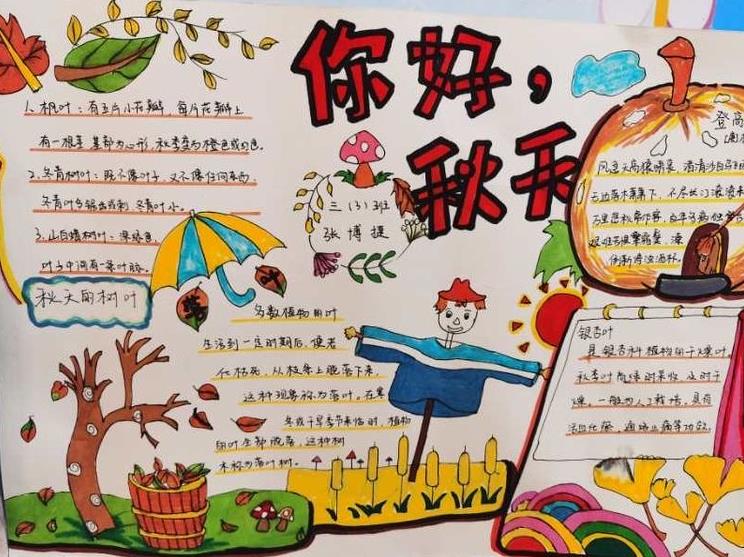 你好，
秋天
三（3）班
张博捷
1、枫叶：有五片小花瓣，每片花瓣上
有一根茎 基部为心形，秋季变为橙色或红色。
2、冬青树叶：既不像叶子，又不像任何东西，
冬青叶
3、山白蜡树叶：深绿色，
叶子中间有一条叶脉。
秋天的树叶
多数植物用叶
生活到一定时期后，便老
化枯死，从枝条上脱落下来，
这种现象称为落叶。在寒
冬或干旱季节来临时，植物
用叶全部脱落，这种树
木称为落叶树。
登高
风急天高猿啸哀，渚清沙白鸟
无边落木萧萧下，不尽长江滚滚来
万里悲秋常作客，百年多病
艰难苦恨繁霜鬓，潦
倒新停浊酒杯。
银杏叶
是银杏科植物用干燥叶。
秋季叶尚绿时采收，及时干
燥，一般为人工栽培，具有
活血化瘀，通络止痛等功效。